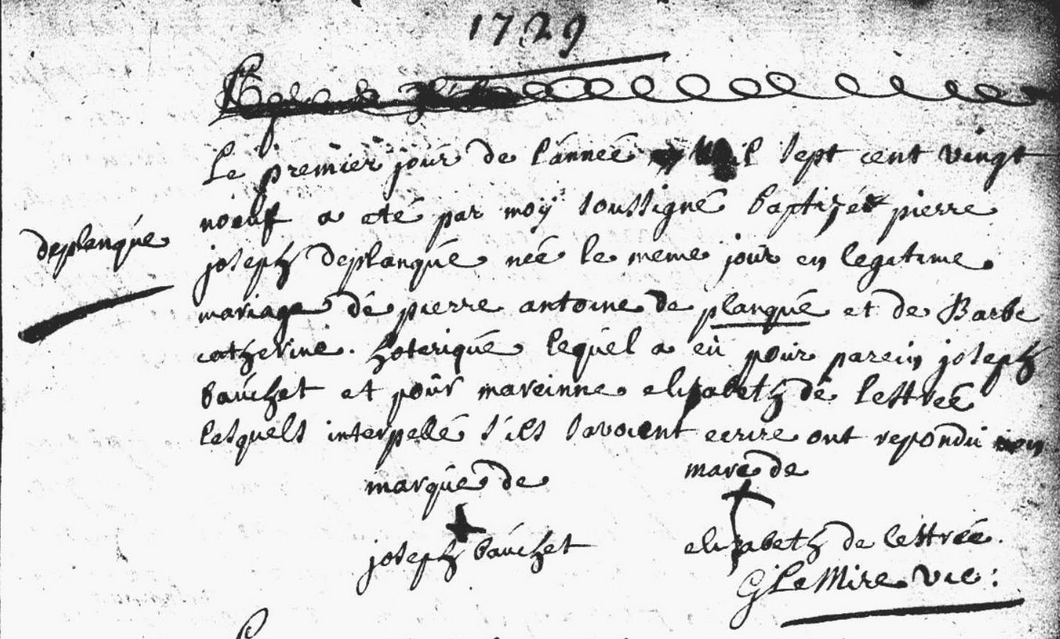 1729
Le premier jour de l'année mil sept cent vingt
noeuf a eté par moÿ soussigné baptizée pierre
joseph deplanque née le meme jour en legitime
deplanque
mariage de pierre antoine de planque et de Barbe
catherine hoterique lequel a eû pour parein joseph
bauchet et pour mareinne elizabeth de lestrée
lesquels interpellé s'ils savoient ecrire ont repondu non
marque de
marc de
joseph bauchet
elizabeth de lestrée.
G LeMire vic: